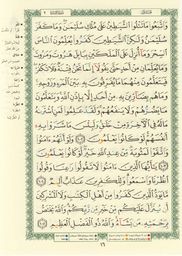 وَاتَّبَعُوا مَا تَتْلُوا الشَّيَٰطِينُ عَلَىٰ مُلْكِ سُلَيْمَٰنَ وَمَا كَفَرَ
سُلَيْمَٰنُ وَلَٰكِنَّ الشَّيَٰطِينَ كَفَرُوا يُعَلِّمُونَ النَّاسَ
السِّحْرَ وَمَا أُنزِلَ عَلَى الْمَلَكَيْنِ بِبَابِلَ هَٰرُوتَ وَمَٰرُوتَ
وَمَا يُعَلِّمَانِ مِنْ أَحَدٍ حَتَّىٰ يَقُولَا إِنَّمَا نَحْنُ فِتْنَةٌ فَلَا تَكْفُرْ
فَيَتَعَلَّمُونَ مِنْهُمَا مَا يُفَرِّقُونَ بِهِ بَيْنَ الْمَرْءِ وَزَوْجِهِ
وَمَا هُم بِضَارِّينَ بِهِ مِنْ أَحَدٍ إِلَّا بِإِذْنِ اللَّهِ وَيَتَعَلَّمُونَ
مَا يَضُرُّهُمْ وَلَا يَنفَعُهُمْ وَلَقَدْ عَلِمُوا لَمَنِ اشْتَرَىٰهُ
مَا لَهُ فِي الْءَاخِرَةِ مِنْ خَلَٰقٍ وَلَبِئْسَ مَا شَرَوْا بِهِ
أَنفُسَهُمْ لَوْ كَانُوا يَعْلَمُونَ ١٠٢ وَلَوْ أَنَّهُمْ ءَامَنُوا
وَاتَّقَوْا لَمَثُوبَةٌ مِّنْ عِندِ اللَّهِ خَيْرٌ لَّوْ كَانُوا يَعْلَمُونَ ١٠٣
يَٰأَيُّهَا الَّذِينَ ءَامَنُوا لَا تَقُولُوا رَٰعِنَا وَقُولُوا
انظُرْنَا وَاسْمَعُوا وَلِلْكَٰفِرِينَ عَذَابٌ أَلِيمٌ ١٠٤
مَّا يَوَدُّ الَّذِينَ كَفَرُوا مِنْ أَهْلِ الْكِتَٰبِ وَلَا الْمُشْرِكِينَ
أَن يُنَزَّلَ عَلَيْكُم مِّنْ خَيْرٍ مِّن رَّبِّكُمْ وَاللَّهُ يَخْتَصُّ
بِرَحْمَتِهِ مَن يَشَاءُ وَاللَّهُ ذُو الْفَضْلِ الْعَظِيمِ ١٠٥
١٦